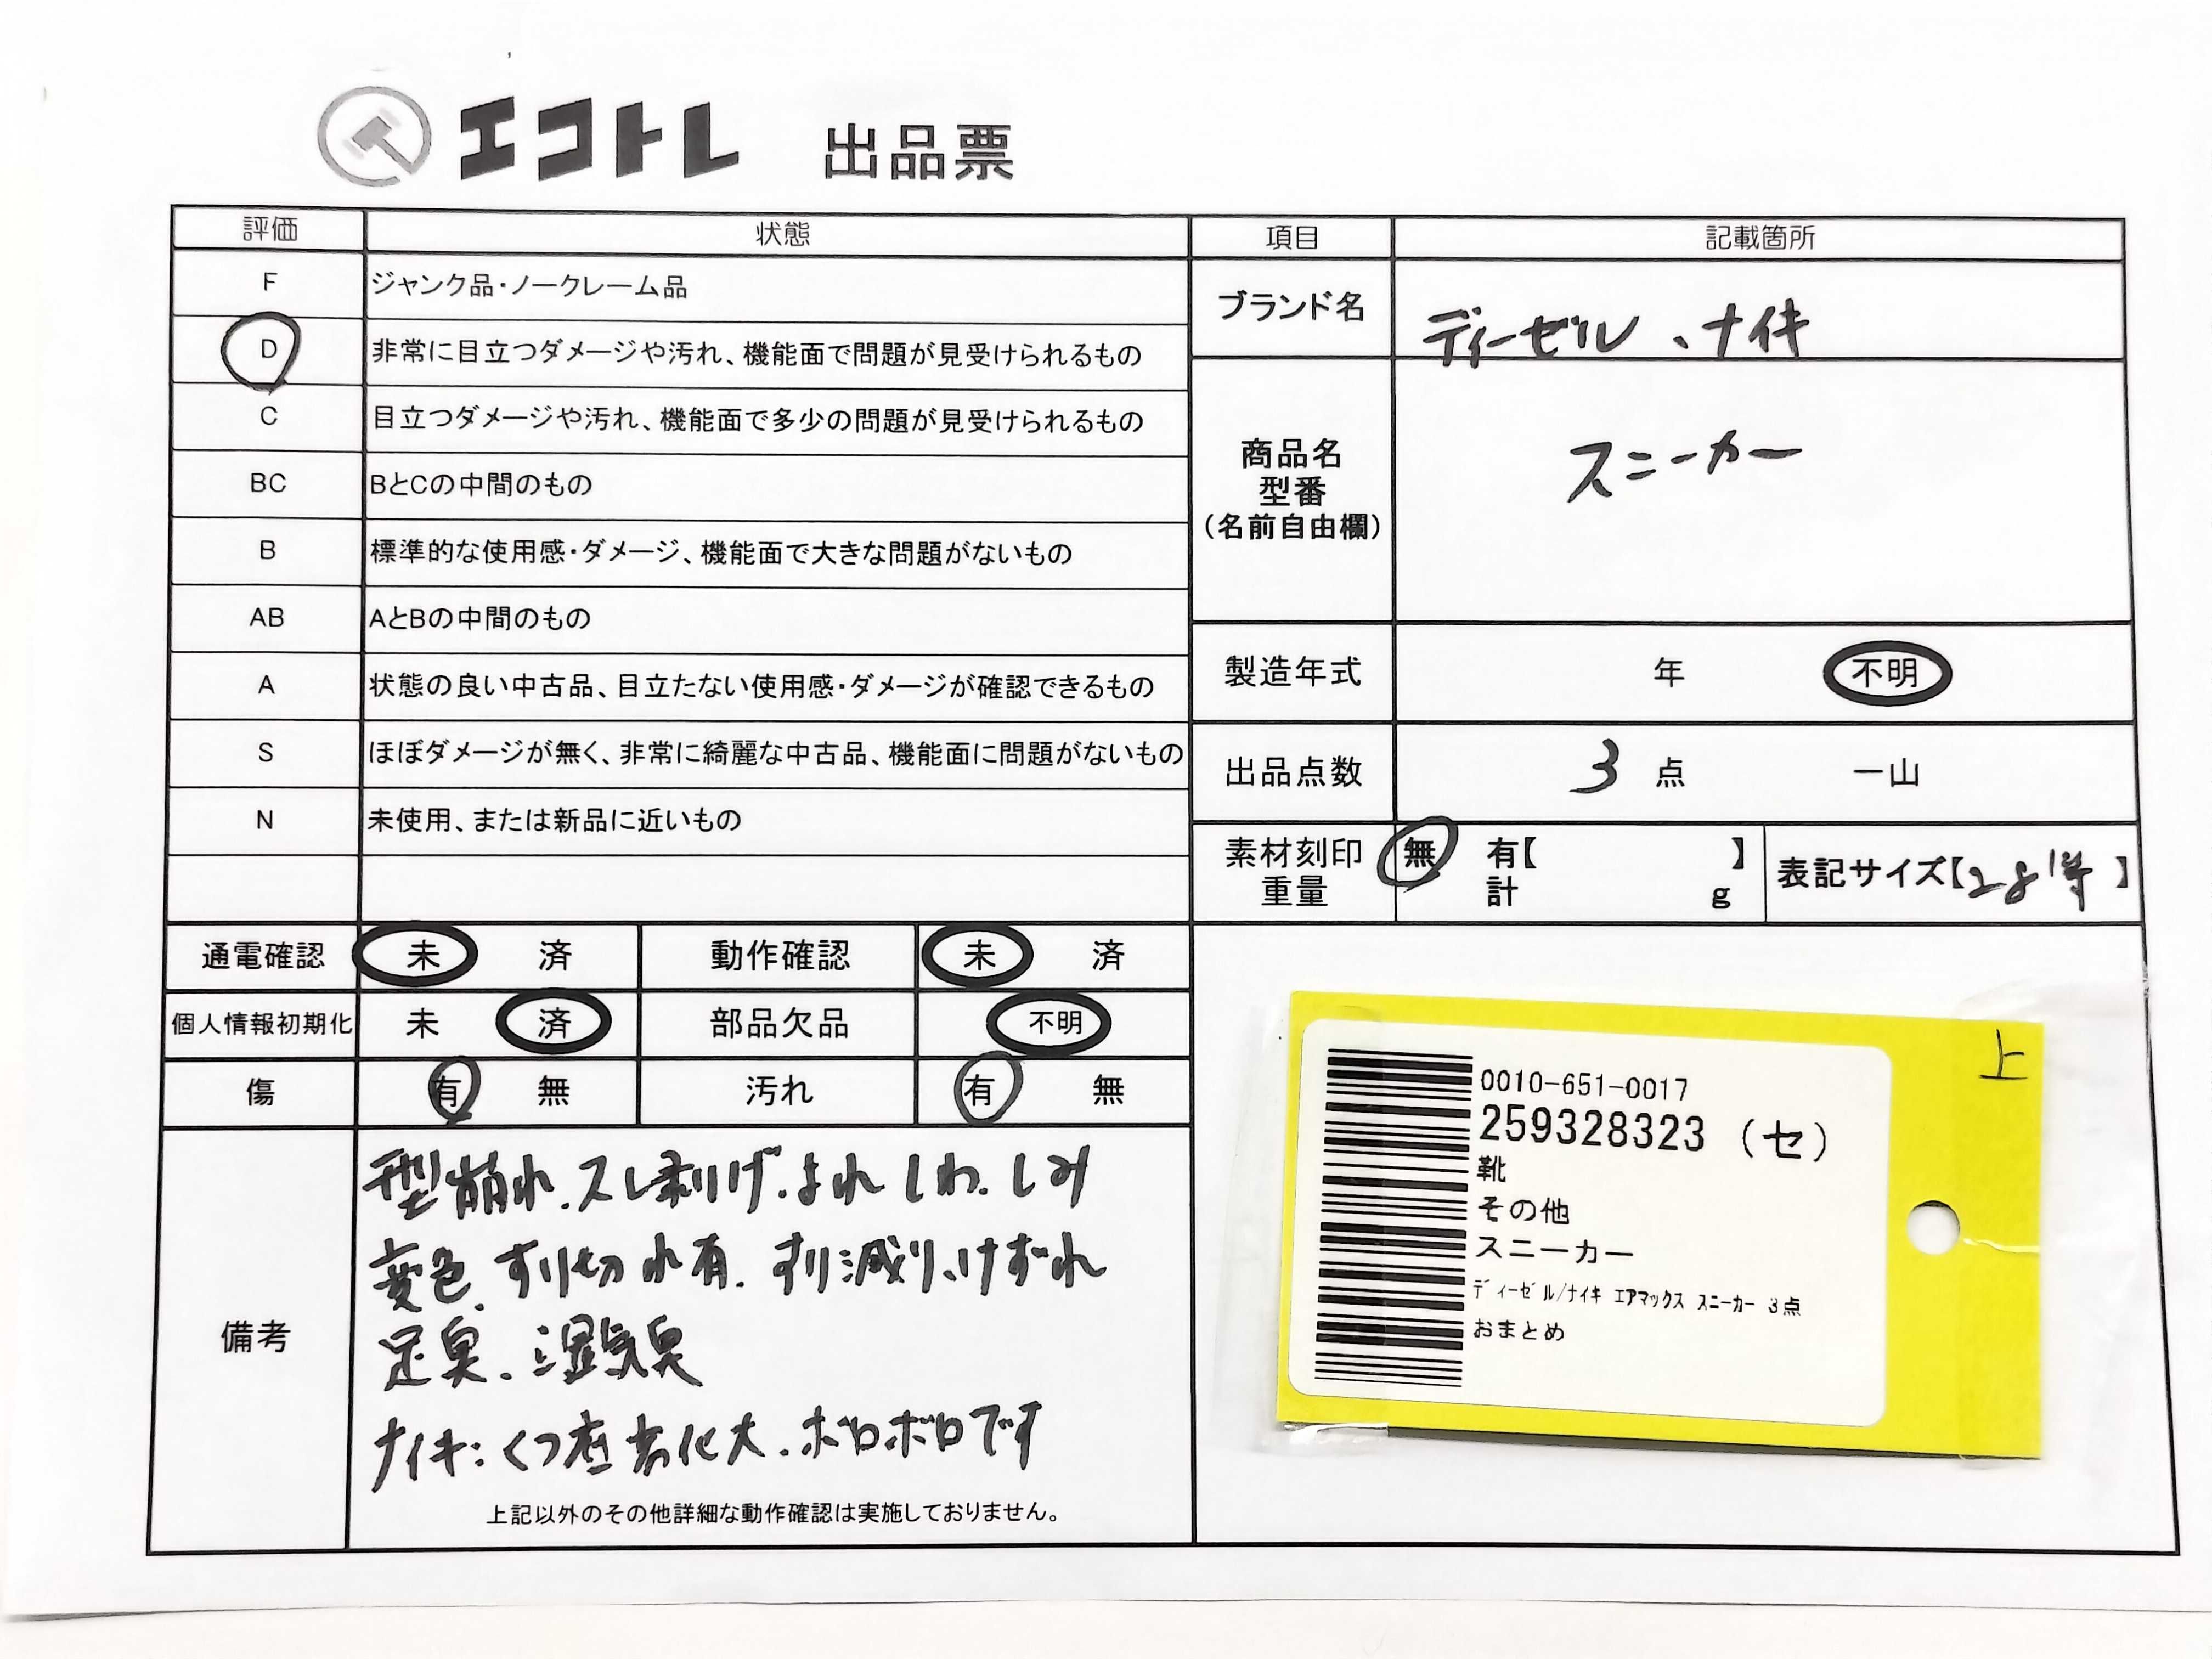 エコトレ 出品票
評価 状態
F ジャンク品・ノークレーム品
D 非常に目立つダメージや汚れ、機能面で問題が見受けられるもの
C 目立つダメージや汚れ、機能面で多少の問題が見受けられるもの
BC BとCの中間のもの
B 標準的な使用感・ダメージ、機能面で大きな問題がないもの
AB AとBの中間のもの
A 状態の良い中古品、目立たない使用感・ダメージが確認できるもの
S ほぼダメージが無く、非常に綺麗な中古品、機能面に問題がないもの
N 未使用、または新品に近いもの
項目 記載箇所
ブランド名 ディーゼル、ナイキ
商品名
型番
(名前自由欄)
スニーカー
製造年式 年 不明
出品点数 3 点 一山
素材刻印 無 有【 】
重量 計 g
表記サイズ【28等】
通電確認 未 済 動作確認 未 済
個人情報初期化 未 済 部品欠品 不明
傷 有 無 汚れ 有 無
備考
型崩れ.スレ剥げ.よれ しわ.しみ
変色.すり切れ有.すり減り、けずれ
足臭.湿気臭
ナイキ:くつ底劣化大.ボロボロです
上記以外のその他詳細な動作確認は実施しておりません。
上
0010-651-0017
259328323 (セ)
靴
その他
スニーカー
ディーゼル/ナイキ エアマックス スニーカー 3点
おまとめ